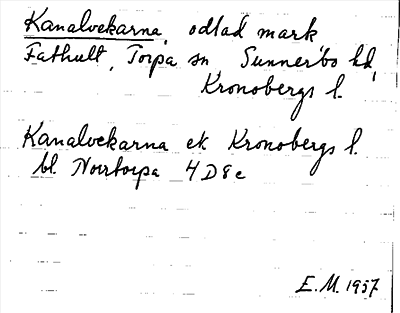 Kanalvekarna, odlad mark
Fathult, Torpa sn Sunnerbo hd,
Kronobergs l.
Kanalvekarna ek. Kronobergs l.
bl. Norrtorpa 4D8c
E.M. 1957